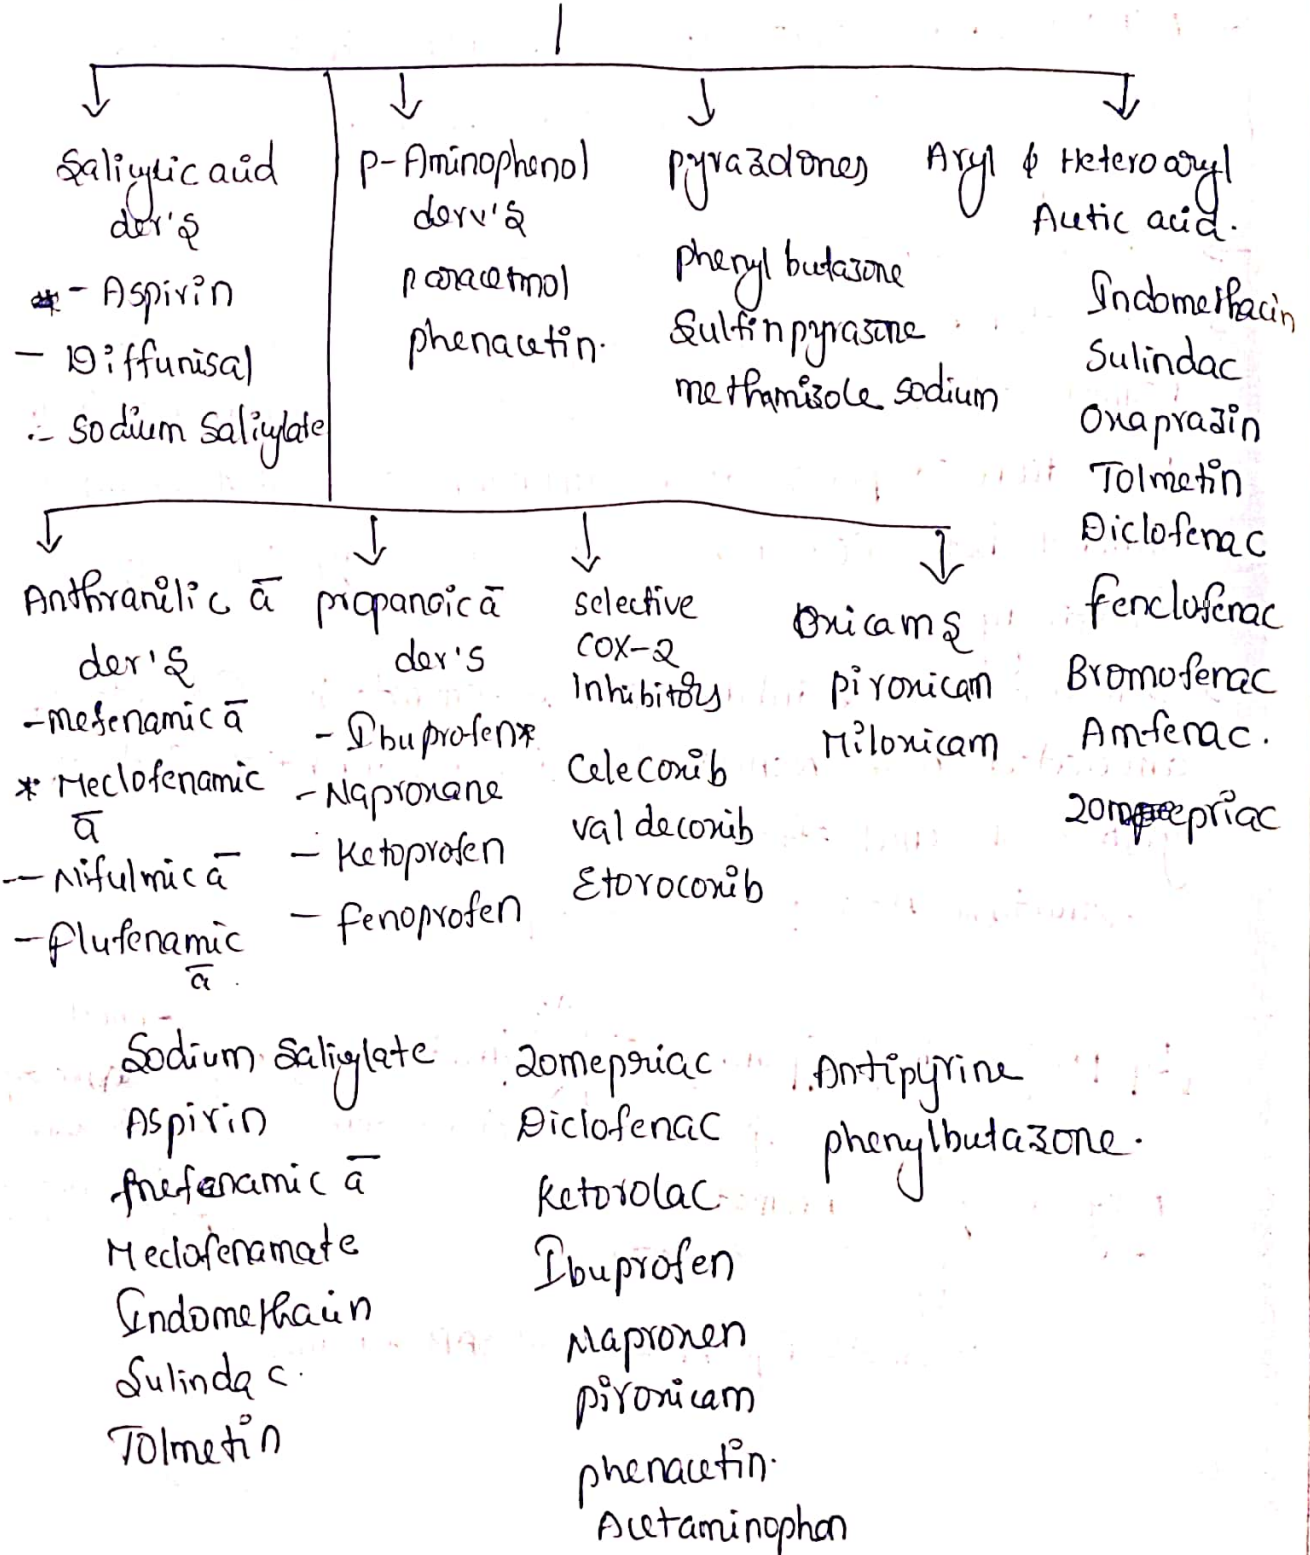 Salicylic acid
der's
- Aspirin
- Diffunisal
- Sodium Salicylate
p-Aminophenol
derv's
paracetmol
phenacetin.
pyrazolones
phenyl butazone
Sulfinpyrazone
methamizole sodium
Aryl & Heteroaryl
Acetic acid.
Indomethacin
Sulindac
Oxaprazin
Tolmetin
Diclofenac
fenclofenac
Bromofenac
Amfenac.
zomepriac
Anthranilic ā
der's
- mefenamic ā
* Meclofenamic
ā
- Nifulmic ā
- flufenamic
ā.
propanoic ā
der's
- Ibuprofen*
- Naproxane
- Ketoprofen
- fenoprofen
selective
COX-2
Inhibitors
Celecoxib
valdecoxib
Etorocoxib
Oxicams
piroxicam
Miloxicam
Sodium Salicylate
Aspirin
mefenamic ā
Meclofenamate
Indomethacin
Sulindac.
Tolmetin
zomepriac
Diclofenac
Ketorolac
Ibuprofen
Naproxen
piroxicam
phenacetin.
Acetaminophen
Antipyrine
phenylbutazone.